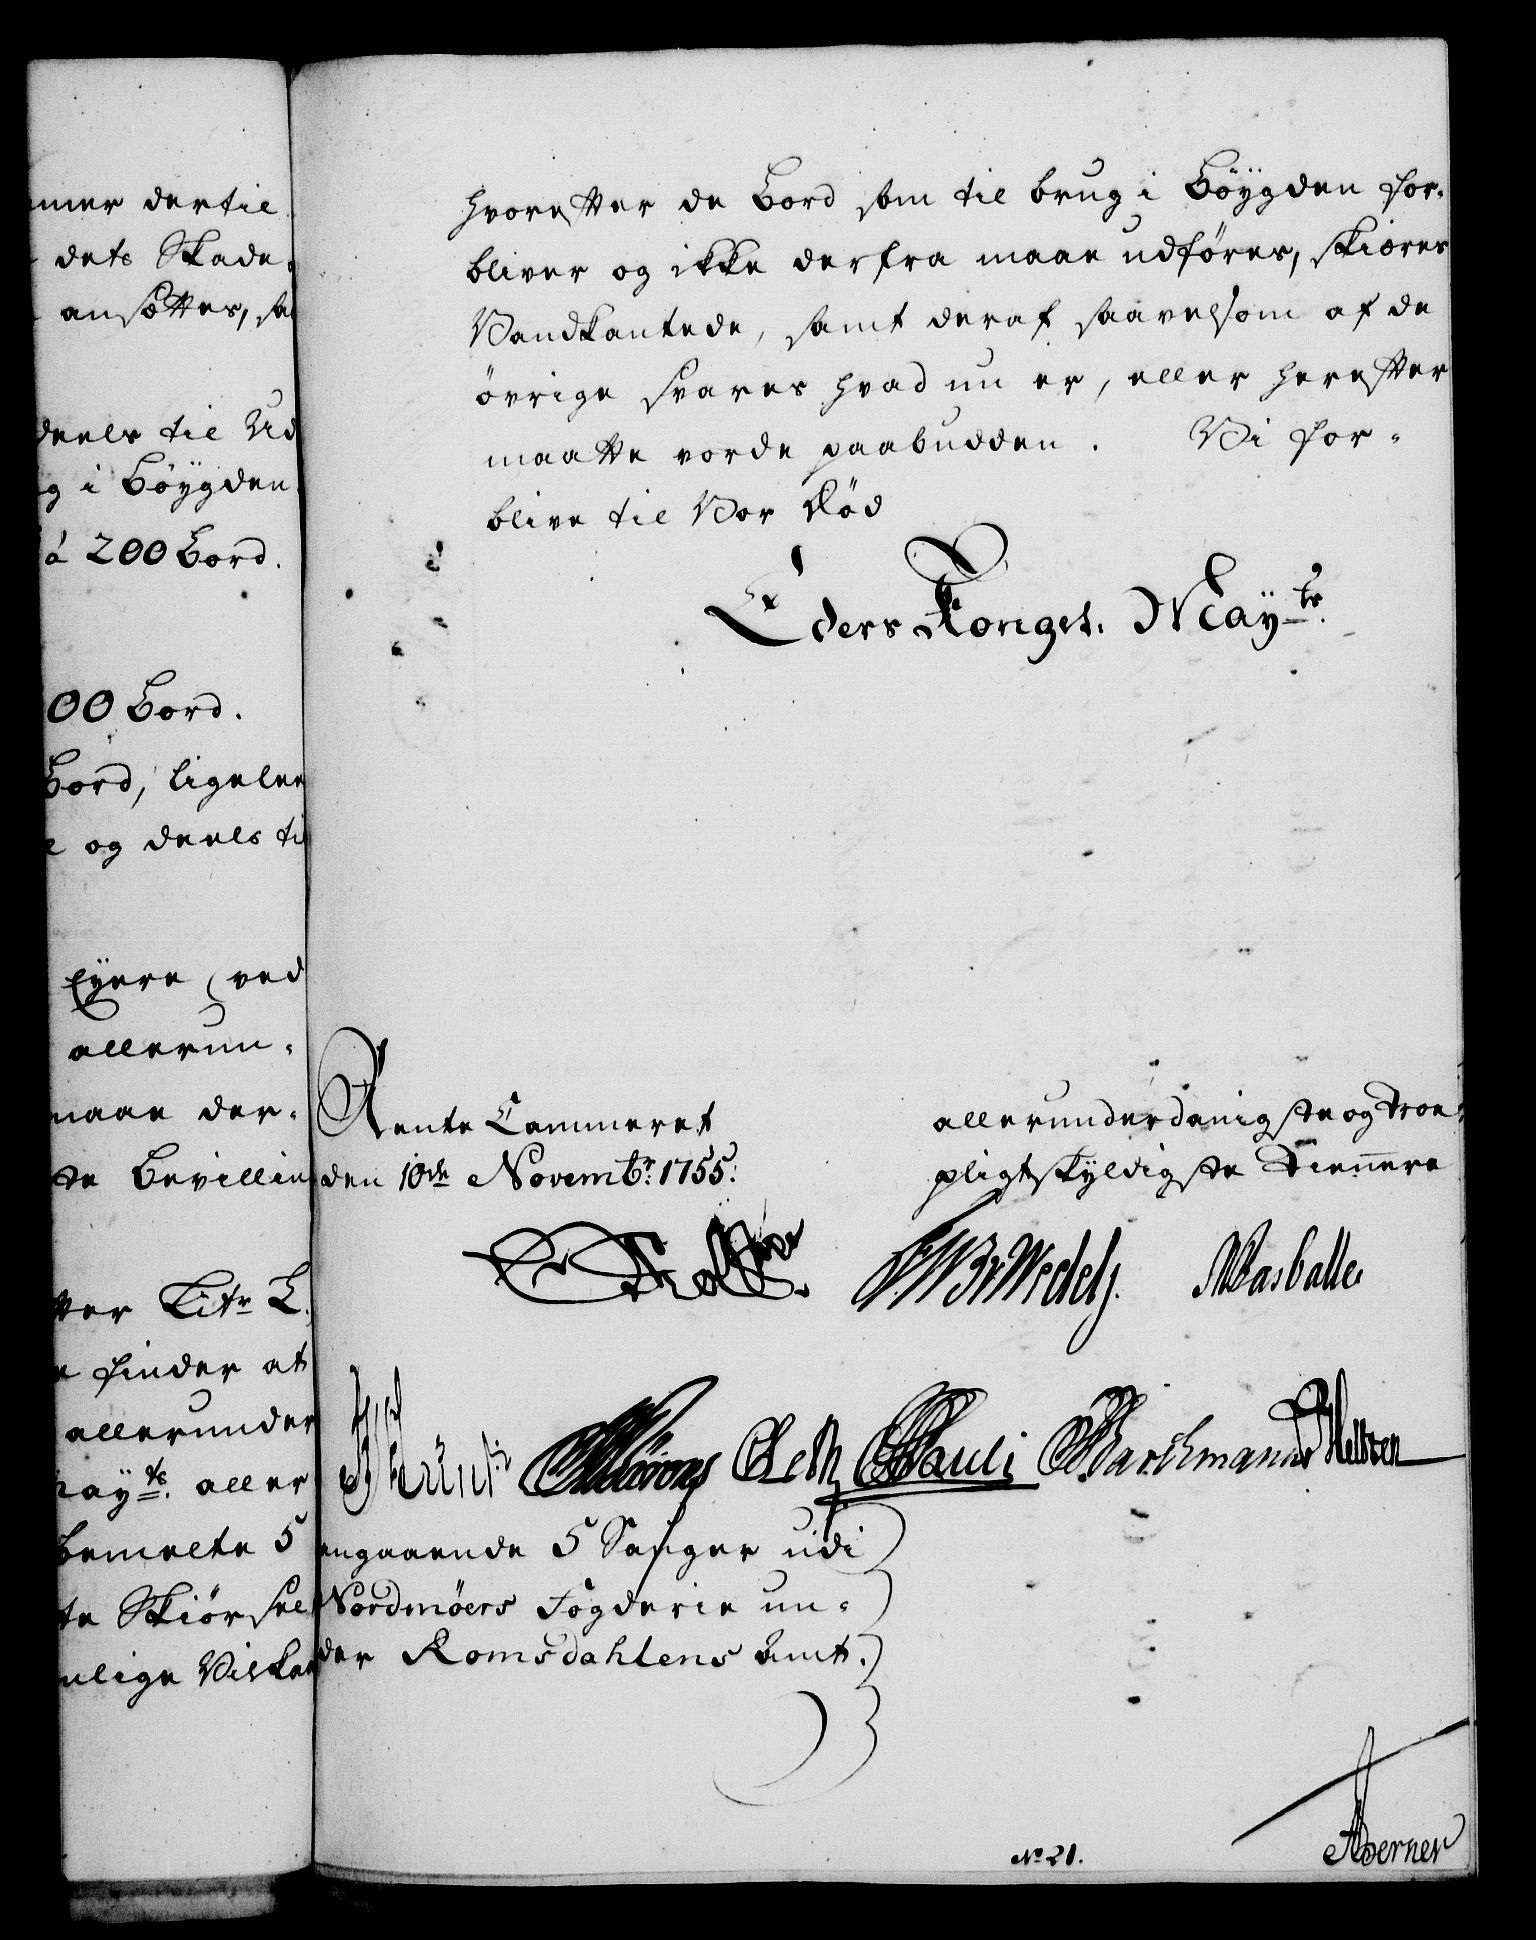 mer dertil
dets Skade.
ansættes, sa
deels til Ud
g i Bøygden
à 200 Bord.
00 Bord.
Bord, ligelee
og deels ti
Eyere, ved
allerun-
maae der-
te Bevillin
ter Litr L.
finder at
allerunder
may.ts aller
bemelte 5
te Skiørsel
nlige Vilkaa
hvorefter de Bord som til brug i Bøygden for-
bliver og ikke derfra maae udføres, skiæres
Vandkantede, samt deraf saavelsom af de
øvrige svares hvad nu er, eller herefter
maatte vorde paabudden. Vi for-
blive til Vor Død
Eders Kongel. May.ts
Rente Cammeret
den 10de Novembr: 1755.
allerunderdanigste og troe-
pligtskyldigste Tiennere
Holstein
Wedel
Rasballe
Leth Pauli Barchmann Meltzen
angaaende 5 Sauger udi
Nordmøers Fogderie un-
der Romsdahlens Amt.
No 21.
Aberner